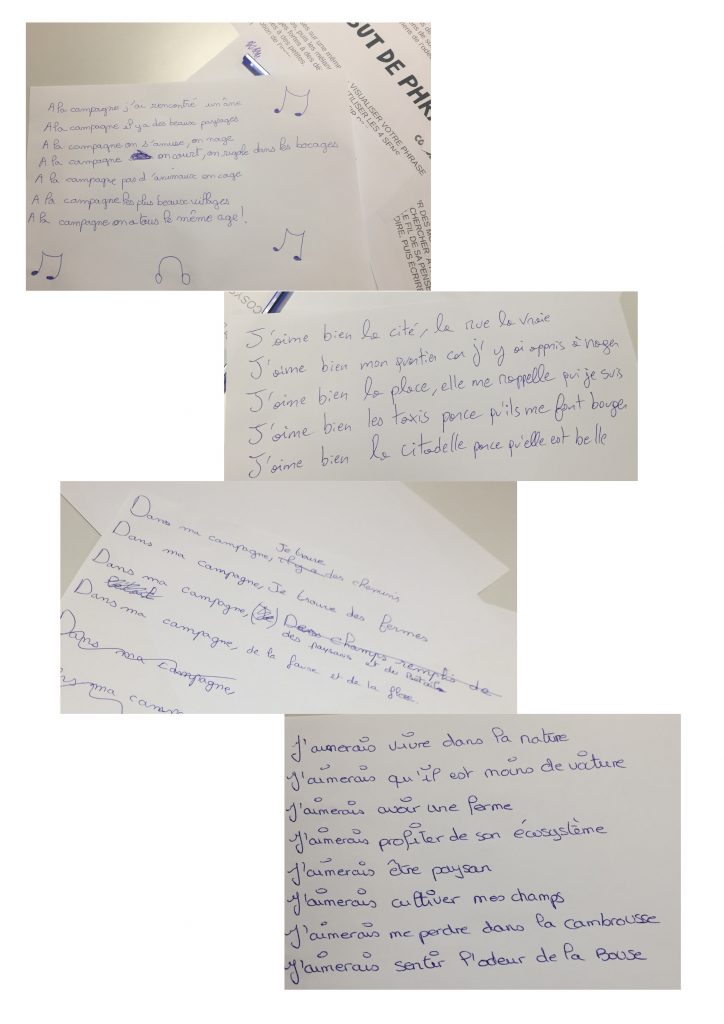 A la campagne j'ai rencontré un âne
A la campagne il y a des beaux paysages
A la campagne on s'amuse, on nage
A la campagne on court, on rigole dans les bocages
A la campagne pas d'animaux en cage
A la campagne les plus beaux villages
A la campagne on a tous le même age!
BUT DE PHR
VISUALISER VOTRE PHRASE
TILISER LES 4 SENS
CHERCHER
LE FIL DE SA PENSÉ
DIRE, PUIS ÉCRIRE
J'aime bien la cité, la rue la vraie
J'aime bien mon quartier car j'y ai appris à nager
J'aime bien la place, elle me rappelle qui je suis
J'aime bien les taxis parce qu'ils me font bouger
J'aime bien la citadelle parce qu'elle est belle
Je trouve
Dans ma campagne, des chemins
Dans ma campagne, Je trouve des fermes
Dans ma campagne, (Je) Des champs remplis de
des paysans et du
Dans ma campagne, de la faune et de la flore.
Dans ma campagne,
ns ma camp
J'aimerais vivre dans la nature
J'aimerais qu'il est moins de voiture
J'aimerais avoir une ferme
J'aimerais profiter de son écosystème
J'aimerais être paysan
J'aimerais cultiver mes champs
J'aimerais me perdre dans la cambrousse
J'aimerais sentir l'odeur de la Bouse